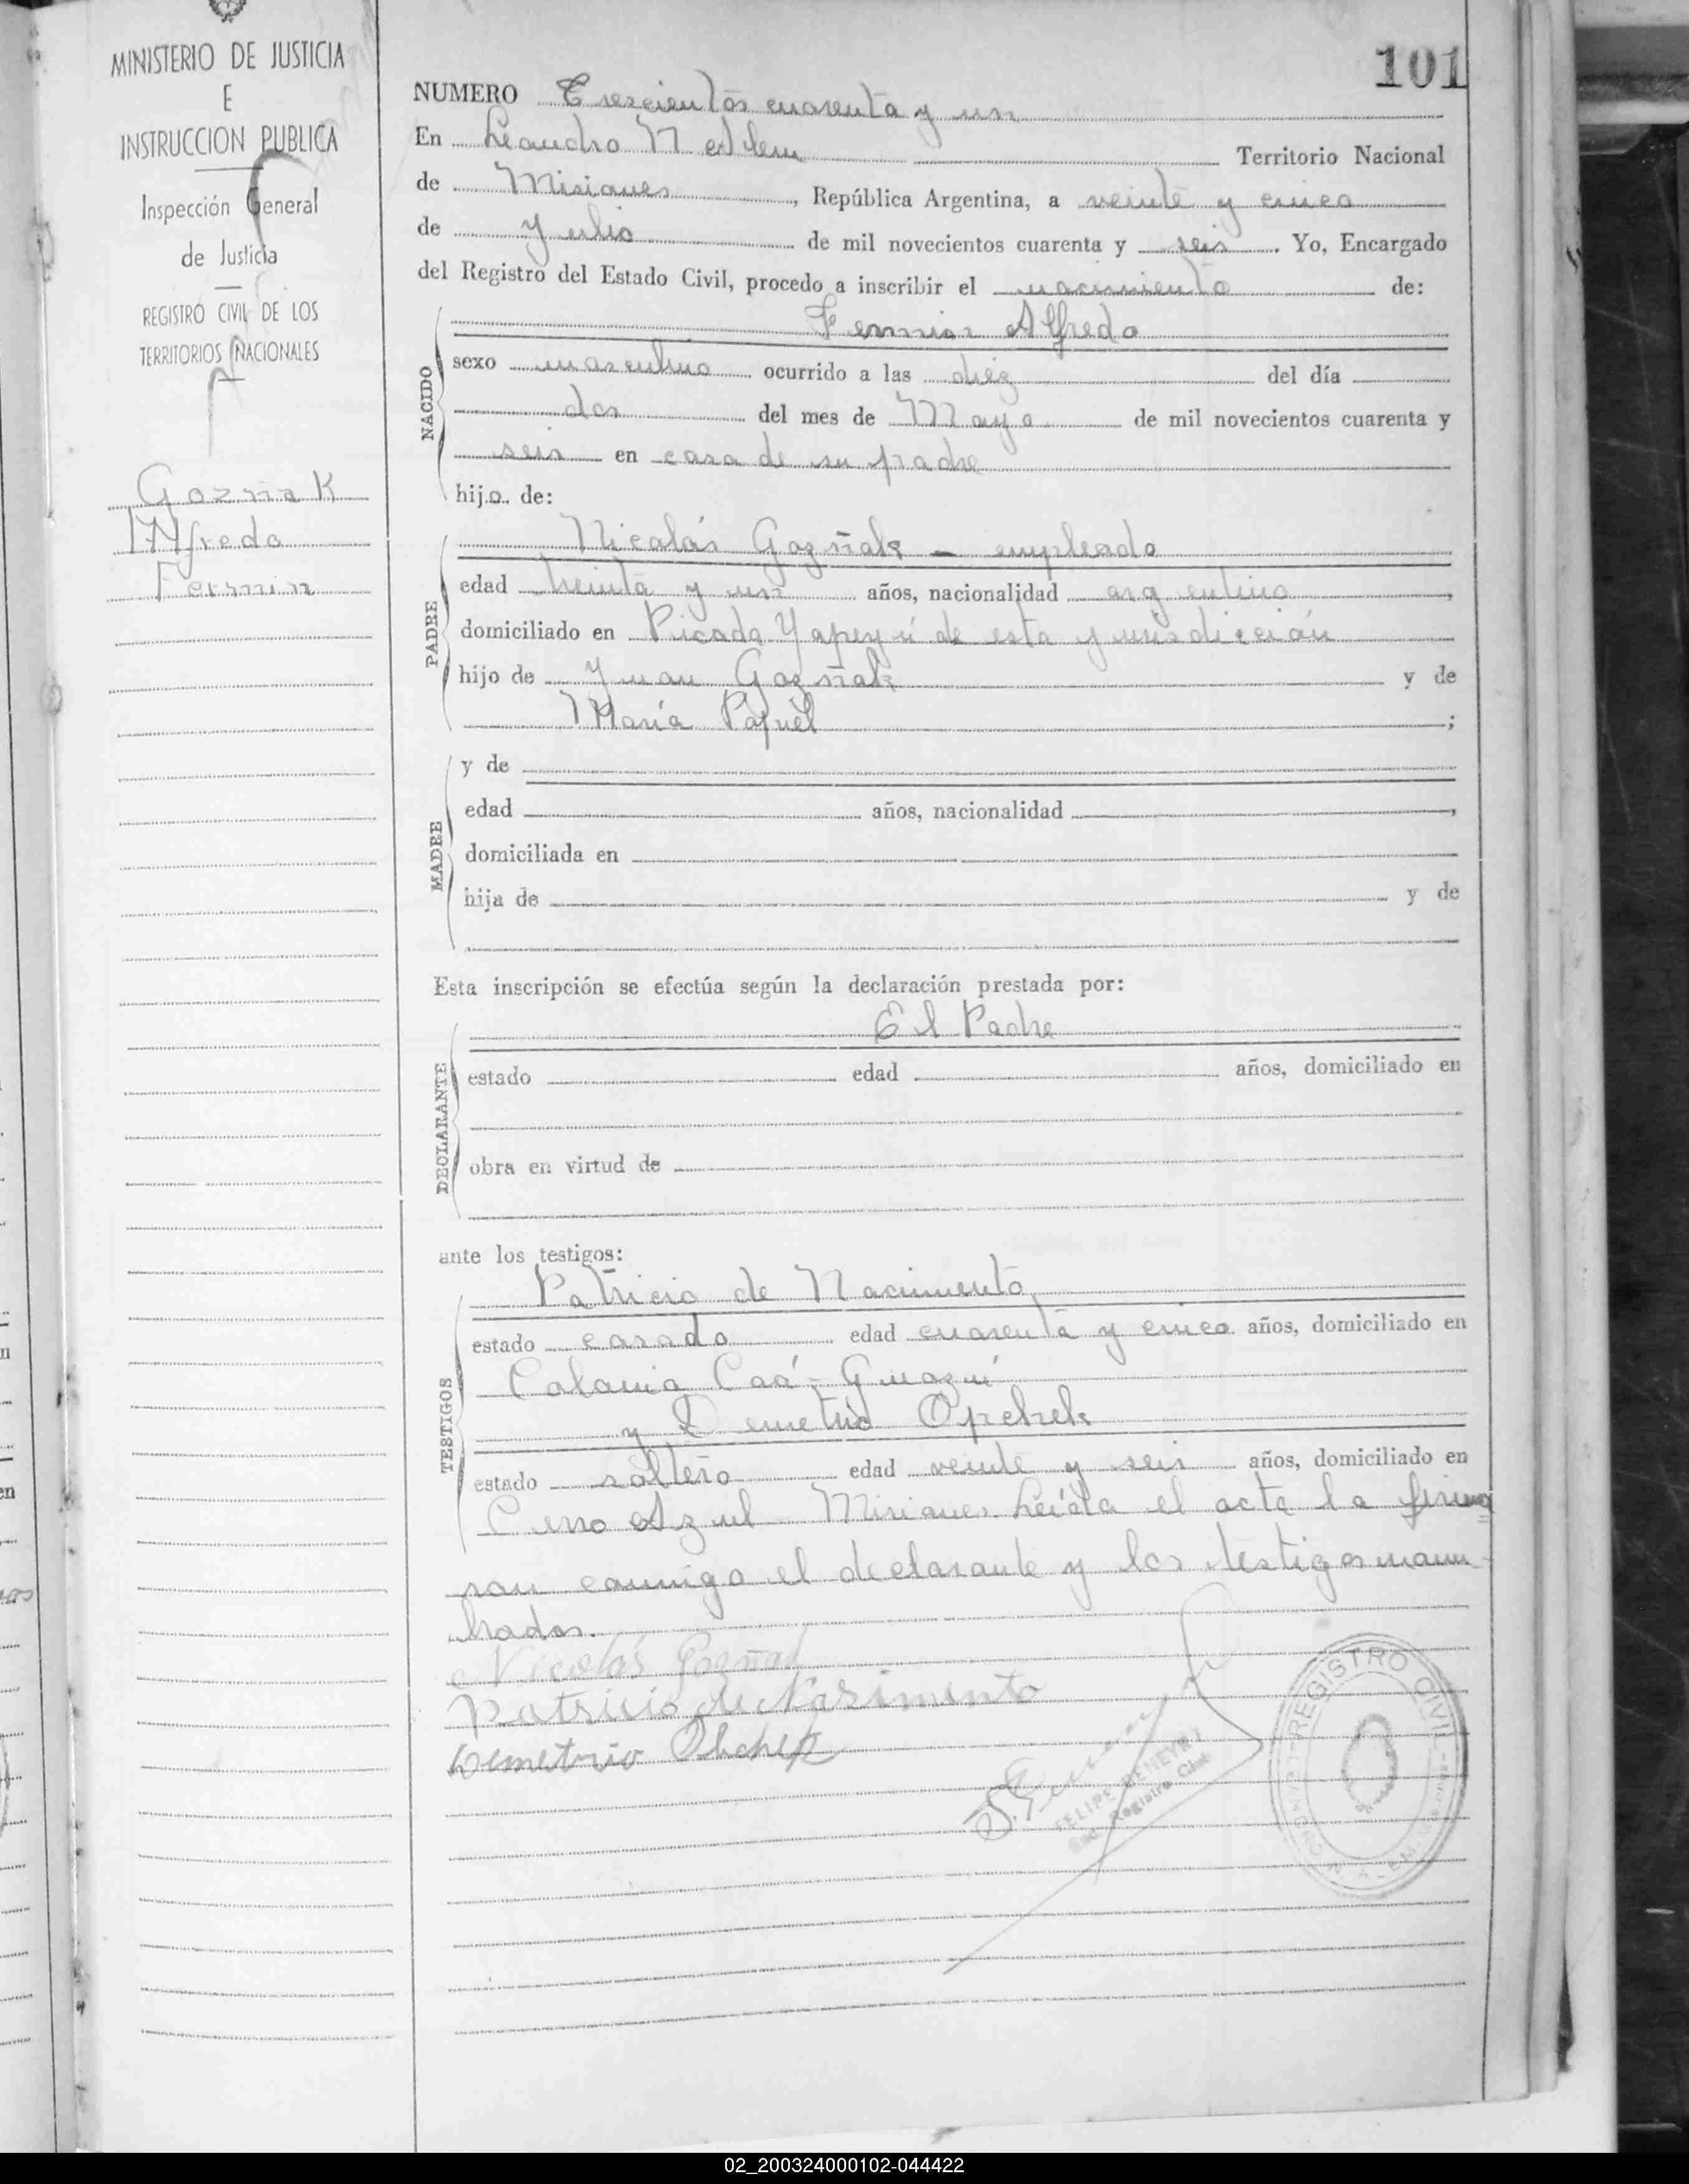 MINISTERIO DE JUSTICIA
E
INSTRUCCION PUBLICA
Inspección General
de Justicia
REGISTRO CIVIL DE LOS
TERRITORIOS NACIONALES
Gozñak
Alfredo
Fermin
101
NUMERO Trescientos cuarenta y un
En Leandro N Alem Territorio Nacional
de Misiones, República Argentina, a veinte y cinco
de Yulio de mil novecientos cuarenta y seis. Yo, Encargado
del Registro del Estado Civil, procedo a inscribir el nacimiento de:
Fermin Alfredo
NACIDO
sexo masculino ocurrido a las diez del día
dos del mes de Mayo de mil novecientos cuarenta y
seis en casa de su padre
hijo de:
PADRE
Nicolás Gozñak - empleado
edad treinta y un años, nacionalidad argentino,
domiciliado en Picada Yapeyú de esta yurisdicción
hijo de Yuan Gozñak y de
María ;
MADRE
y de
edad años, nacionalidad ,
domiciliada en
hija de y de
Esta inscripción se efectúa según la declaración prestada por:
El Padre
DECLARANTE
estado edad años, domiciliado en
obra en virtud de
ante los testigos:
TESTIGOS
Patricio de Nacimento
estado casado edad cuarenta y cinco años, domiciliado en
Colonia Caá-Guazú
y Demetrio Opchek
estado soltero edad veinte y seis años, domiciliado en
Cerro Azul Misiones Leída el acta la firma
ron conmigo el declarante y los testigos nom
brados.
Nicolás Gozñak
Patricio de Nasimento
Demetrio
FELIPE
Enc. Registro Civil
REGISTRO CIVIL
02_200324000102-044422